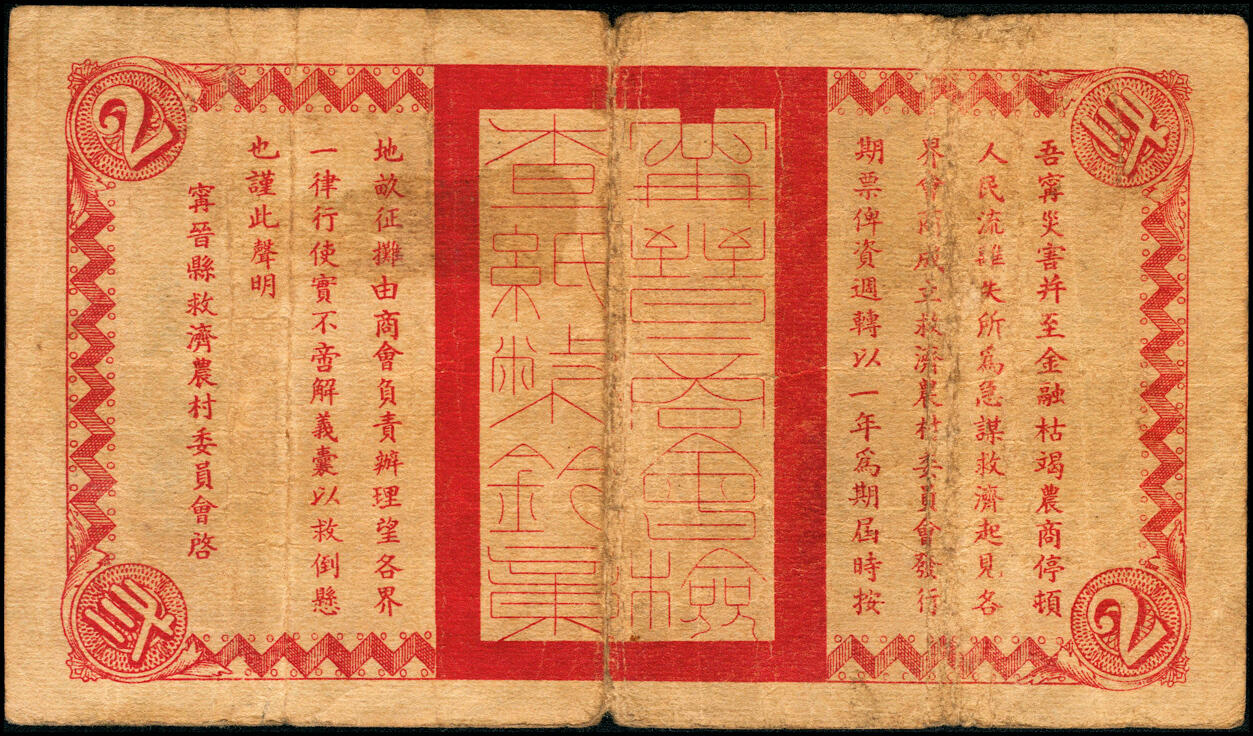 吾寗災害并至金融枯竭農商停頓
人民流離失所為急謀救濟起見各
界會商成立救濟農村委員會發行
期票俾資週轉以一年為期屆時按
甯晉商會檢
查紙幣鈐章
地畝征攤由商會負責辦理望各界
一律行使實不啻解義囊以救倒懸
也謹此聲明
寗晉縣救濟農村委員會啓
2
2